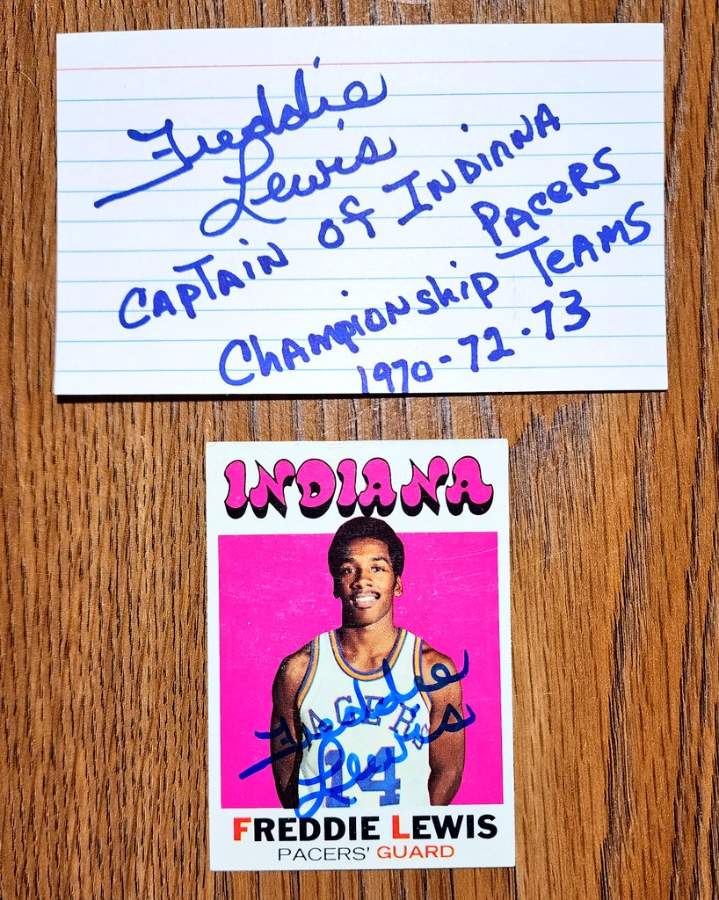 Freddie
Lewis
CAPTAIN OF INDIANA
PACERS
CHAMPIONSHIP TEAMS
1970-72-73
INDIANA
PACERS
14
Freddie
Lewis
FREDDIE LEWIS
PACERS' GUARD